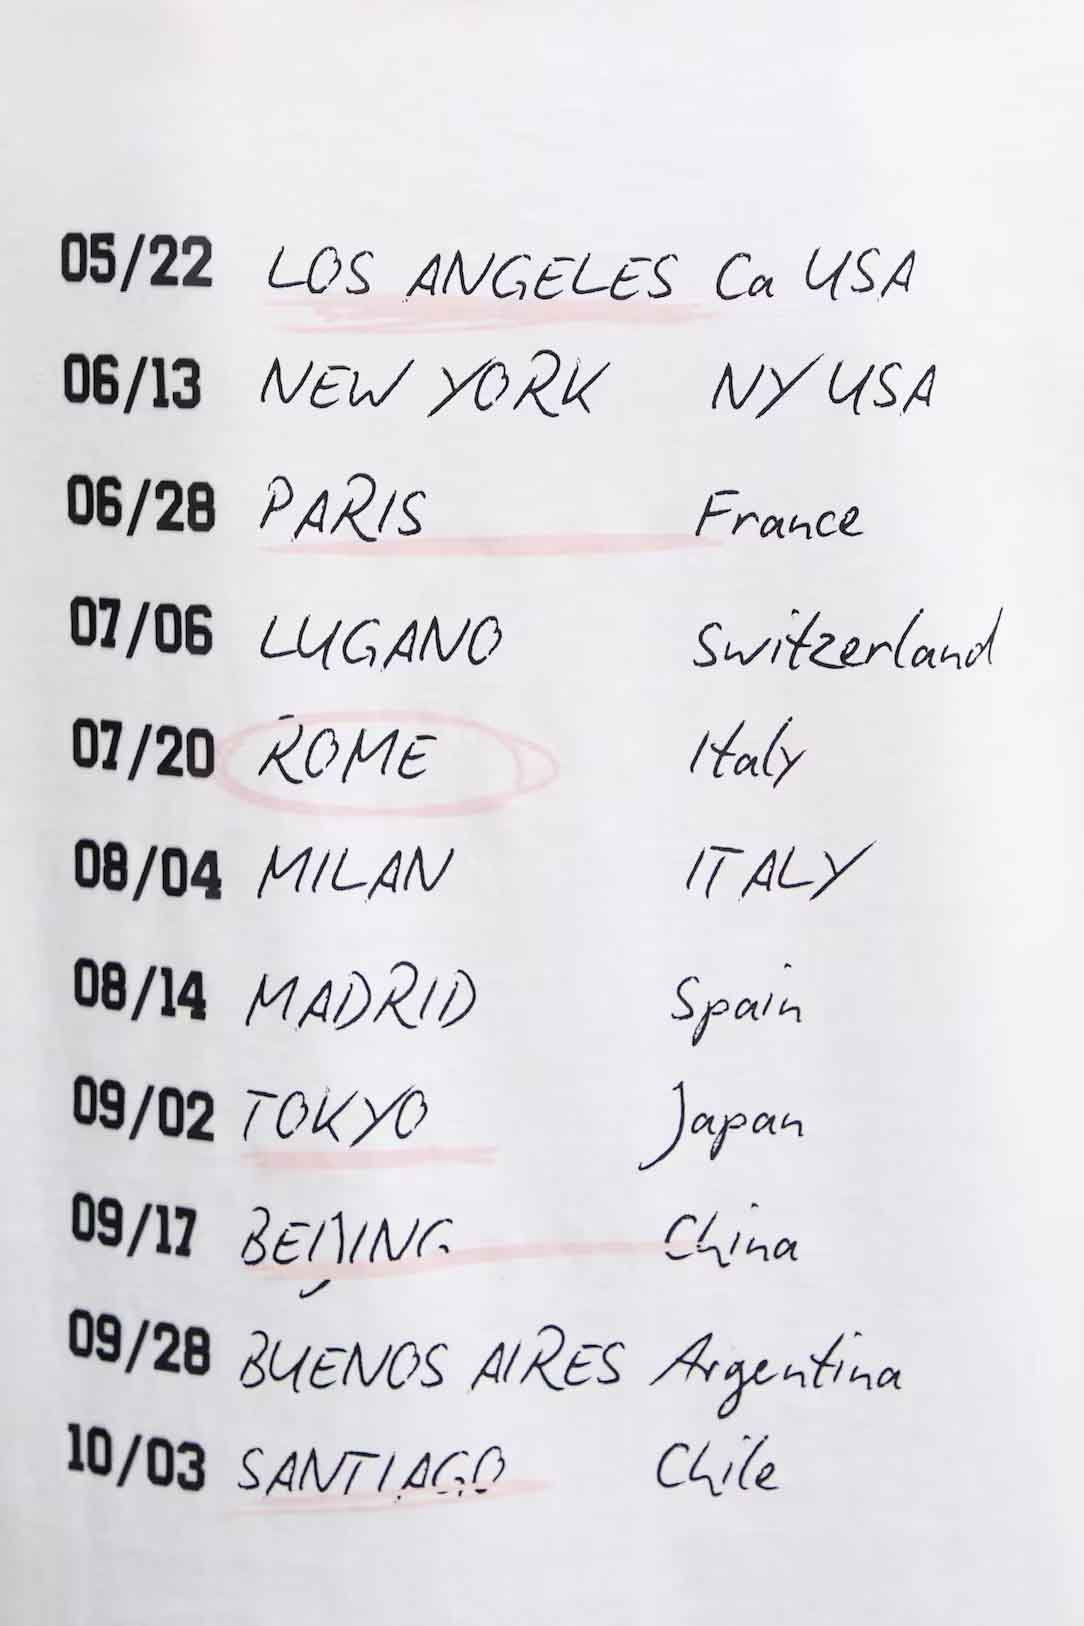 05/22 LOS ANGELES Ca USA
06/13 NEW YORK NY USA
06/28 PARIS France
07/06 LUGANO Switzerland
07/20 ROME Italy
08/04 MILAN ITALY
08/14 MADRID Spain
09/02 TOKYO Japan
09/17 BEIJING China
09/28 BUENOS AIRES Argentina
10/03 SANTIAGO Chile